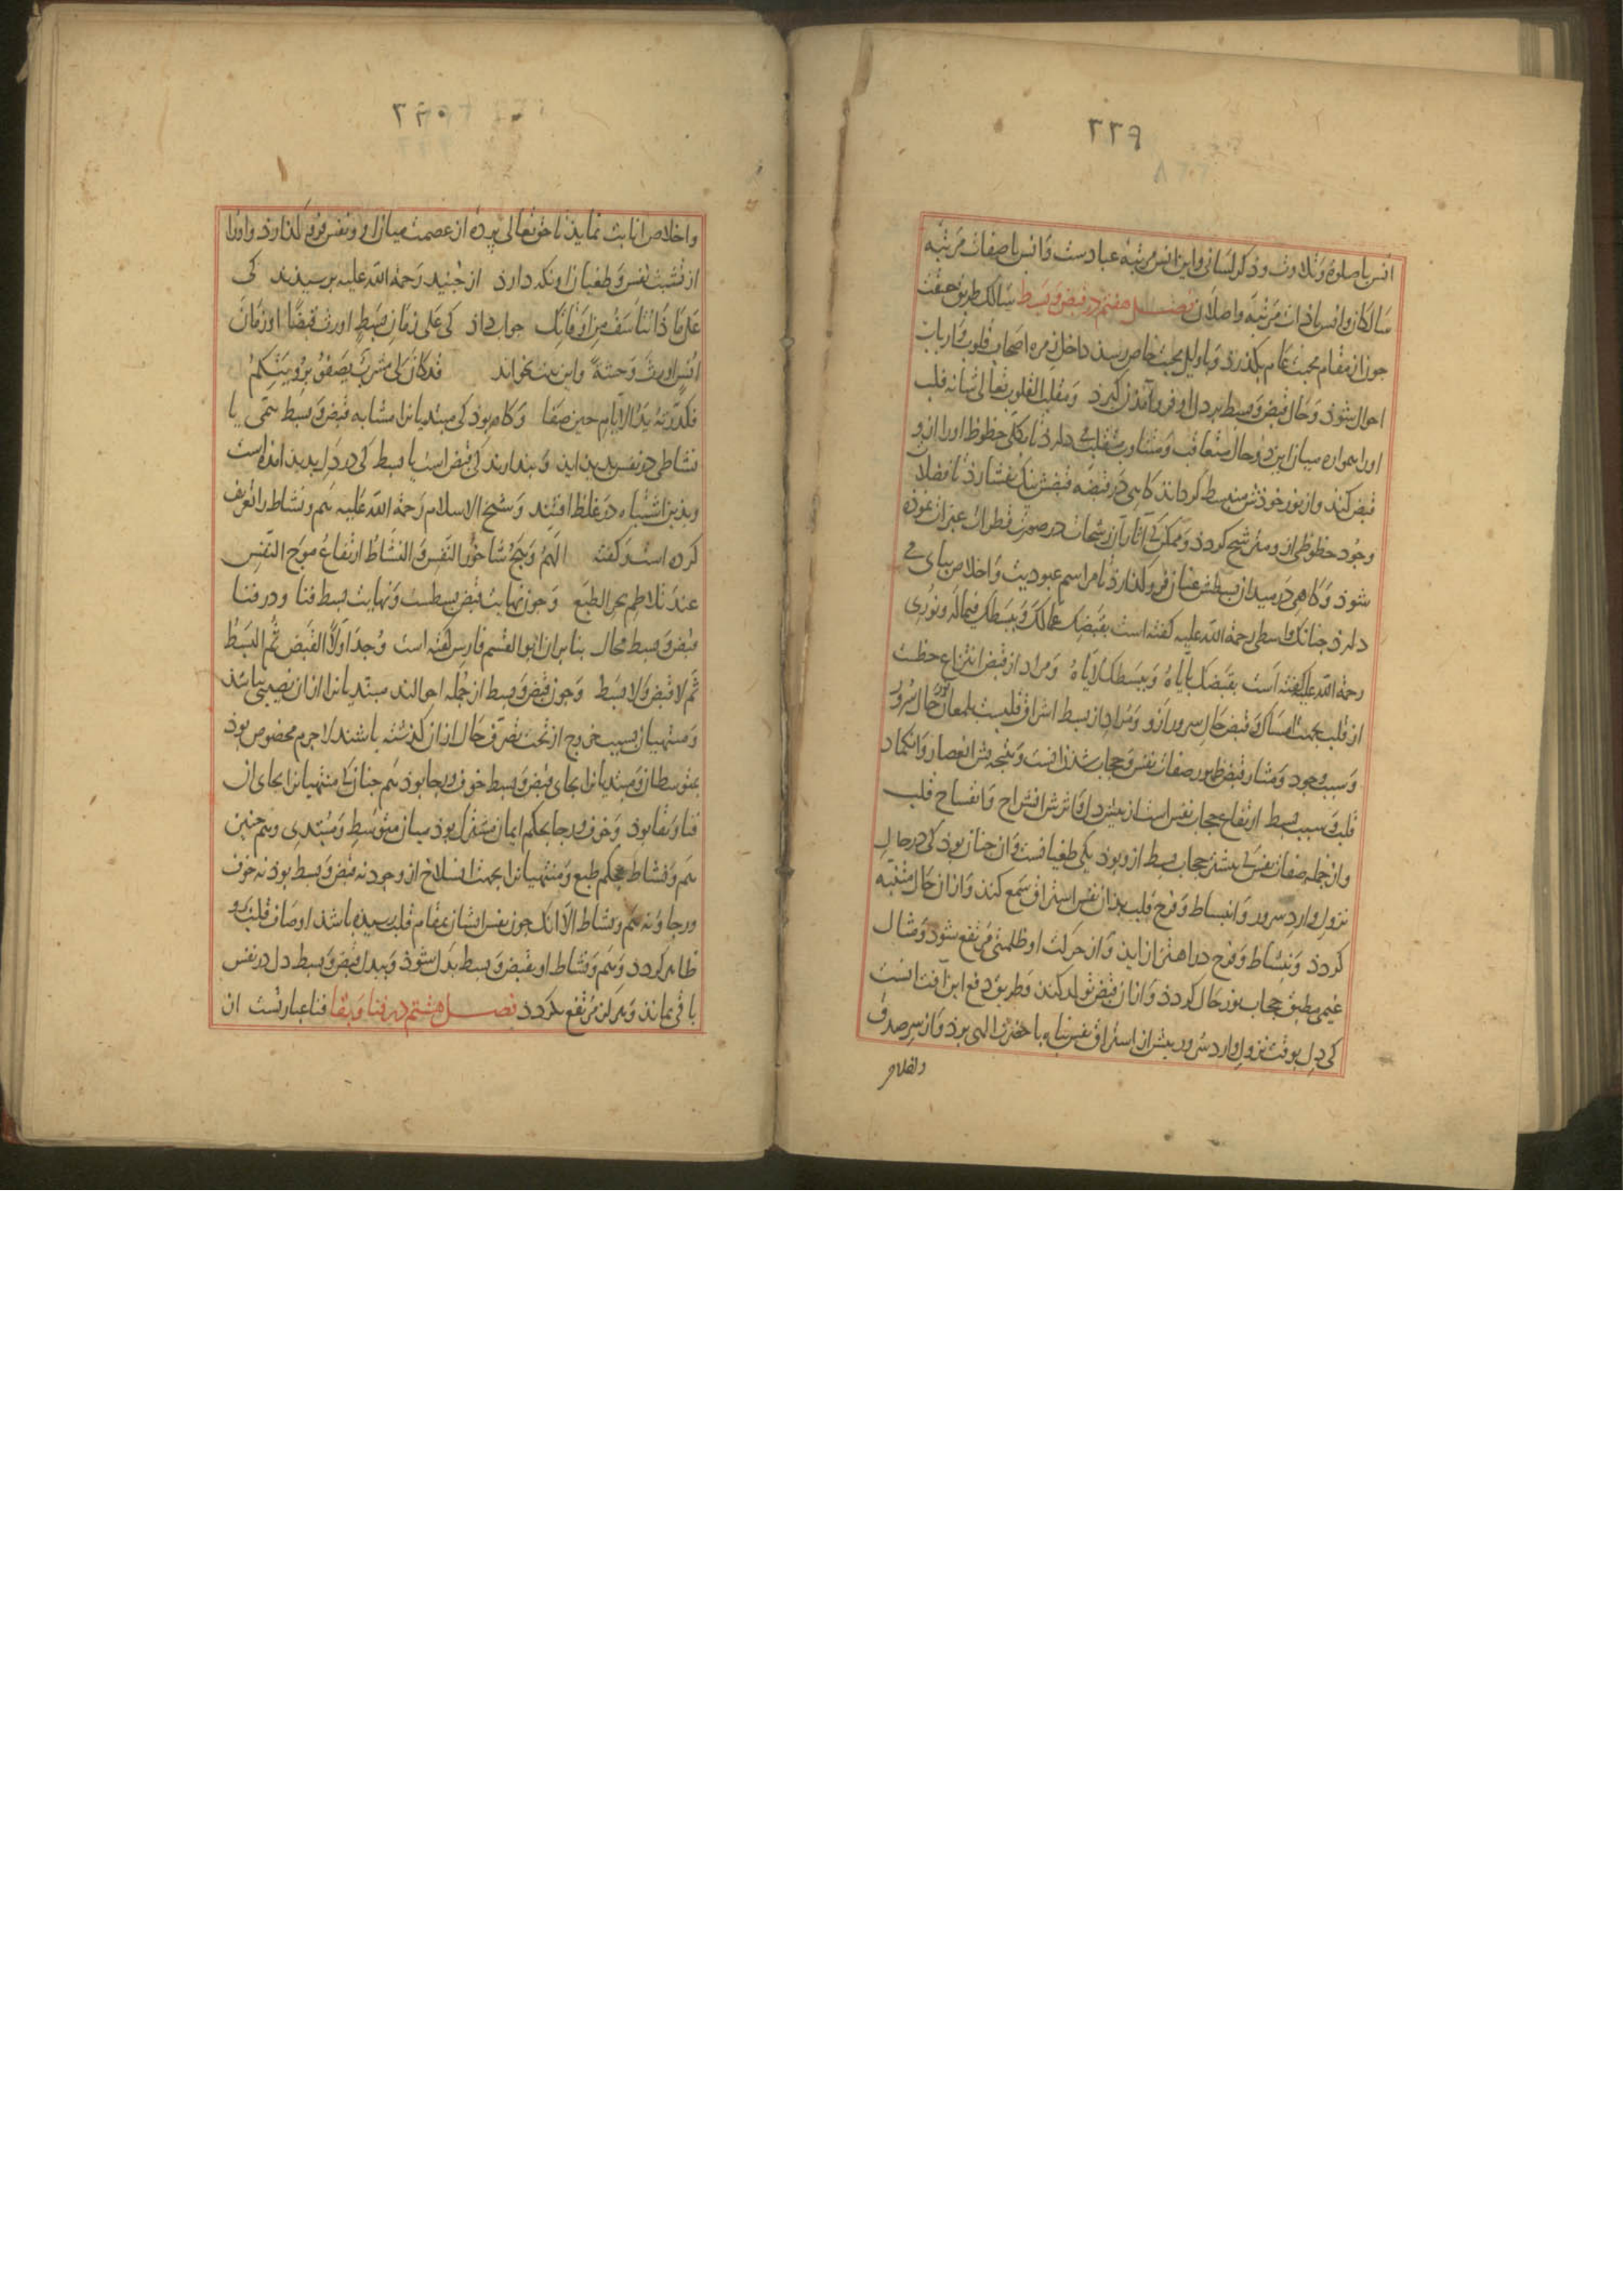 ٢٢٩
انس با صلوة و تلاوت و ذکر لسانی و این انس مرتبهٔ عبادست و انس با صفات مرتبهٔ
سالکان و انس با ذات مرتبهٔ واصلان فصل هفتم در قبض و بسط سالک طریق حقیقت
جون از مقام محبت عام بکذرذ و باوایل محبت خاص رسذ داخل زمرهٔ اصحاب قلوب و ارباب
احوال شوذ و حال قبض و بسط بر دل او فروآمدن کیرذ و مقلب القلوب تعالی شانه قلب
اورا همواره میان این دو حال متعاقب و متناوب متقلب می دارذ تا بکلی حظوظ اورا ازو
قبض کند و از نور خوذش منبسط کرداند کاهی در قبضهٔ قبضش تنک بفشارذ تا فضلات
وجود حظوظی ازو مترشح کردذ و ممکن کی آثار آن رشحات در صورت قطرات عبرات نموذه
شوذ و کاهی در میدان بسطش عنان فروکذارذ تا مراسم عبودیت و اخلاص بپای می
دارذ جنانک واسطی رحمة الله علیه کفته است یقبضک عما لک و یبسطک فیما له و نوری
رحمة الله علیه کفته است یقبضک بایاه و یبسطک لایاه و مراد از قبض انتزاع حظست
از قلب بجهت امساک و قبض حال سرور ازو و مراد از بسط اشراق قلبست بلمعان نور حال سرور
و سبب وجود و مثار قبض ظهور صفات نفس و حجاب شدن انست و نتیجه ش انعصار و انکماد
قلب و سبب بسط ارتفاع حجاب نفس است از پیش دل و اثرش انشراح و انفساح قلب
و از جمله صفات نفس کی بیشتر حجاب بسط ازو بوذ یکی طغیانست و ان جنان بوذ کی در حال
نزول وارد سرور و انبساط و فرح قلب بذان نفس استراق سمع کند و از ان حال متنبه
کردذ و بنشاط و فرح در اهتزاز اید و از حرکت او ظلمتی مرتفع شود و مثال
غیمی مطبق حجاب نور حال کردذ و از ان قبض تولد کند و طریق دفع این آفت انست
کی دل بوقت نزول وارد سرور بیش از استراق نفس پناه با حضرت الهی برذ و از سر صدق
و اخلاص
٢٣٠
و اخلاص انابت نماید تا حق تعالی پردهٔ از عصمت میان او و نفس فروکذارذ و اورا
از تشبث نفس و طغیان او نکه دارذ از جنید رحمة الله علیه برسیدند کی
علی ما ذا تتاسف من اوقاتک جواب داذ کی علی زمان بسط اورث قبضا او زمان
انس اورث وحشة و این بیت بخواند قد کان لی مشرب یصفو برؤیتکم
فکدرته ید الایام حین صفا و کاه بوذ کی مبتدیانرا مشابه قبض و بسط همی یا
نشاطی در نفس پدید اید و پندارند کی قبض است یا بسط کی در دل پدید امده است
و بذین اشتباه در غلط افتند و شیخ الاسلام رحمة الله علیه هم و نشاط را تعریف
کرده است و کفته الهم وهج ساجور النفس و النشاط ارتفاع موج النفس
عند تلاطم بحر الطبع و جون نهایت قبض بسطست و نهایت بسط فنا و در فنا
قبض و بسط محال بنابران ابو القسم فارس کفته است وجد اولا القبض ثم البسط
ثم لا قبض و لا بسط و جون قبض و بسط از جمله احوالند مبتدیانرا از ان نصیبی نباشد
و منتهیان بسبب خروج از تحت تصرف حال از ان کذشته باشند لاجرم مخصوص بوذ
بمتوسطان و مبتدیانرا بجای قبض و بسط خوف و رجا بوذ هم جنان کی منتهیانرا بجای ان
فنا و بقا بوذ و خوف و رجا بحکم ایمان مشترک بوذ میان متوسط و مبتدی و هم جنین
هم و نشاط بحکم طبع و منتهیانرا بجهت انسلاخ از وجود نه قبض و بسط بوذ نه خوف
و رجا و نه هم و نشاط الا انک جون نفس ایشان بمقام قلب رسیده باشد اوصاف قلب درو
ظاهر کردد و هم و نشاط او بقبض و بسط بدل شوذ و بیدل قبض و بسط دل در نفس
باقی بماند و هرکز مرتفع نکردد فصل هشتم در فنا و بقا فنا عبارتست از